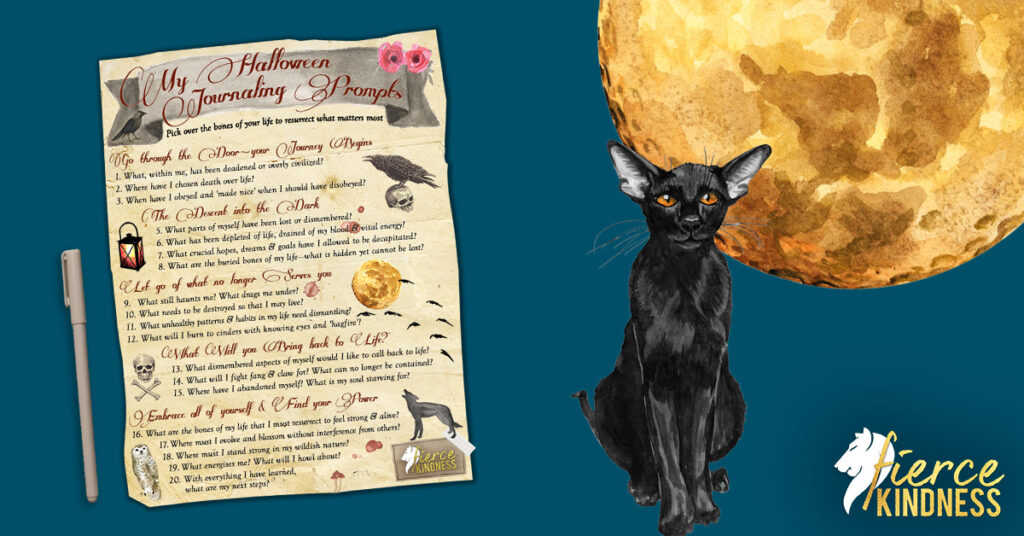 My Halloween
Journaling Prompts
Pick over the bones of your life to resurrect what matters most
Go through the Door~your Journey Begins
1. What, within me, has been deadened or overly civilized?
2. Where have I chosen death over life?
3. When have I obeyed and 'made nice' when I should have disobeyed?
The Descent into the Dark
5. What parts of myself have been lost or dismembered?
6. What has been depleted of life, drained of my blood & vital energy?
7. What crucial hopes, dreams & goals have I allowed to be decapitated?
8. What are the buried bones of my life--what is hidden yet cannot be lost?
Let go of what no longer Serves you
9. What still haunts me? What drags me under?
10. What needs to be destroyed so that I may live?
11. What unhealthy patterns & habits in my life need dismantling?
12. What will I burn to cinders with knowing eyes and 'hagfire'?
What Will you Bring back to Life?
13. What dismembered aspects of myself would I like to call back to life?
14. What will I fight fang & claw for? What can no longer be contained?
15. Where have I abandoned myself? What is my soul starving for?
Embrace all of yourself & Find your Power
16. What are the bones of my life that I must resurrect to feel strong & alive?
17. Where must I evolve and blossom without interference from others?
18. Where must I stand strong in my wildish nature?
19. What energises me? What will I howl about?
20. With everything I have learned,
what are my next steps?
fierce
KINDNESS
fierce
KINDNESS